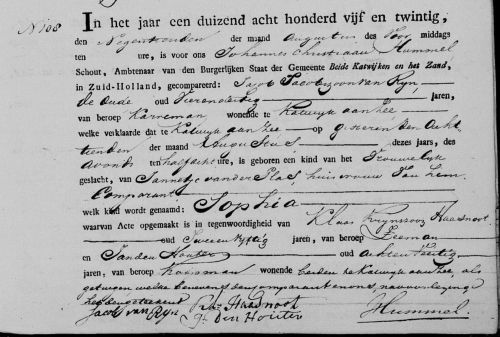 No 108
In het jaar een duizend acht honderd vijf en twintig,
den Negentienden der maand Augustus des Voor middags
ten ure, is voor ons Johannes Christiaan Hummel
Schout, Ambtenaar van den Burgerlijken Staat der Gemeente Beide Katwijken en het Zand,
in Zuid-Holland, gecompareerd: Jacob Jacobszoon van Ryn
de Oude oud Vierendertig jaren,
van beroep Karreman wonende te Katwyk aan Zee
welke verklaarde dat te Katwyk aan Zee op gisteren den Acht
tienden der maand Augustus dezes jaars, des
Avonds ten half acht ure, is geboren een kind van het Vrouwelyk
geslacht, van Jannetje van der Plas, huisvrouw van hem
Comparant
welk kind word genaamd: Sophia
waarvan Acte opgemaakt is in tegenwoordigheid van Klaas Krynszoon Haasnoot
oud Tweeenvyftig jaren, van beroep Zeeman
en Jan den Houter oud Achtenveertig
jaren, van beroep Koopman wonende beiden te Katwyk aan Zee, als
getuigen welke benevens den comparant en ons, na voorlezing
hebben getekend
Jacob van Ryn Haasnoot
Jn Den Houter Hummel